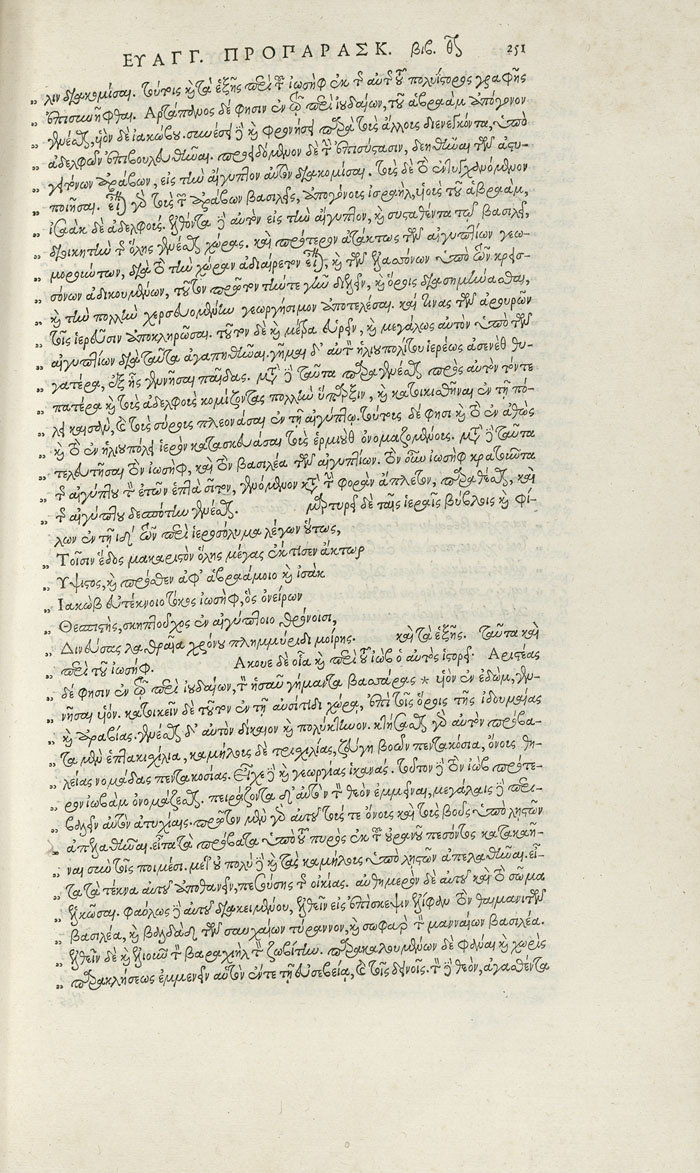 ΕΥΑΓΓ. ΠΡΟΠΑΡΑΣΚ. βιβ. θ 251
λιν διακομίσαι. τούτοις κỳ τὰ ἑξῆς περὶ τοῦ ἰωσὴφ ἐκ τῆς αὐτῆς τοῦ πολυΐστορος γραφῆς
ἐπισυνήφθω. Αρτάπανος δέ φησιν ἐν τῷ περὶ ἰουδαίων, τῷ ἁβραὰμ ἀπόγονον
γενέσθαι, υἱὸν δὲ ἰακώβου. συνέσει δὲ κỳ φρονήσει παρὰ τοὺς ἄλλους διενεγκόντα, ὑπὸ
ἀδελφῶν ἐπιβουλευθῆναι. προϊδόμενον δὲ τὴν ἐπισύστασιν, δεηθῆναι τῶν ἀστυ-
γειτόνων ἀράβων, εἰς τὴν αἴγυπτον αὐτὸν διακομίσαι. τοὺς δὲ τὸ ἐντυγχανόμενον
ποιῆσαι. εἶναι γὰρ τοὺς τῶν ἀράβων βασιλεῖς, ἀπογόνους ἰσραὴλ, υἱοὺς τοῦ ἁβραὰμ,
ἰσαὰκ δὲ ἀδελφούς. ἐλθόντα δὲ αὐτὸν εἰς τὴν αἴγυπτον, κỳ συσταθέντα τῷ βασιλεῖ,
διοικητὴν τῆς ὅλης γενέσθαι χώρας. καὶ πρότερον ἀτάκτως τῶν αἰγυπτίων γεω-
μορούντων, διὰ τὸ τὴν χώραν ἀδιαίρετον εἶναι, κỳ τῶν ἐλασσόνων ὑπὸ τῶν κρεισ-
σόνων ἀδικουμένων, τοῦτον πρῶτον τήν τε γῆν διελεῖν, κỳ ὅροις διασημήνασθαι,
κỳ τὴν πολλὴν χερσευομένην γεωργήσιμον ἀποτελέσαι. καί τινας τῶν ἀρουρῶν
τοῖς ἱερεῦσιν ἀποκληρῶσαι. τοῦτον δὲ κỳ μέτρα εὑρεῖν, κỳ μεγάλως αὐτὸν ὑπὸ τῶν
αἰγυπτίων διὰ ταῦτα ἀγαπηθῆναι. γῆμαι δ' αὐτὸν ἡλιουπολίτου ἱερέως ἀσενὲθ θυ-
γατέρα, ἐξ ἧς γεννῆσαι παῖδας. μετὰ δὲ ταῦτα παραγενέσθαι πρὸς αὐτὸν τόν τε
πατέρα κỳ τοὺς ἀδελφοὺς κομίζοντας πολλὴν ὕπαρξιν, κỳ κατοικισθῆναι ἐν τῇ πό-
λει καισὰν, κỳ τοὺς σύρους πλεονάσαι ἐν τῇ αἰγύπτῳ. τούτους δέ φησι κỳ τὸ ἐν ἀθὼς
κỳ τὸ ἐν ἡλιουπόλει ἱερὸν κατασκευάσαι τοὺς ἑρμιοὺθ ὀνομαζομένους. μετὰ δὲ ταῦτα
τελευτῆσαι τὸν ἰωσὴφ, καὶ τὸν βασιλέα τῶν αἰγυπτίων. τὸν οὖν ἰωσὴφ κρατοῦντα
τῆς αἰγύπτου τὸν τῶν ἐτῶν ἑπτὰ σῖτον, γενόμενον κατὰ τὴν φορὰν ἄπλετον, παραθέσθαι, καὶ
τῆς αἰγύπτου δεσπότην γενέσθαι. μαρτυρεῖ δὲ ταῖς ἱεραῖς βύβλοις κỳ φί-
λων ἐν τῇ ιδʹ τῶν περὶ ἱεροσόλυμα λέγων οὕτως,
Τοῖσιν ἕδος μακαριστὸν ὅλης μέγας ἔκτισεν ἄκτωρ
Υψιστος, κỳ πρόσθεν ἀφ' ἁβραάμοιο κỳ ἰσὰκ
Ιακὼβ εὐτέκνοιο τόκος ἰωσὴφ, ὃς ὀνείρων
Θεσπιστὴς, σκηπτοῦχος ἐν αἰγύπτοιο θρόνοισι,
Δινεύσας λαθραῖα χρόνου πλημμύριδι μοίρης. καὶ τὰ ἑξῆς. ταῦτα καὶ
περὶ τοῦ ἰωσήφ. Ακουε δὲ οἷα κỳ περὶ τοῦ ἰὼβ ὁ αὐτὸς ἱστορεῖ· Αριστέας
δέ φησιν ἐν τῷ περὶ ἰουδαίων, τὸν ἡσαῦ γήμαντα βασσάρας * υἱὸν ἐν ἐδὼμ, γεν-
νῆσαι ἰώβ. κατοικεῖν δὲ τοῦτον ἐν τῇ αὐσίτιδι χώρᾳ, ἐπὶ τοῖς ὅροις τῆς ἰδουμαίας
κỳ ἀραβίας. γενέσθαι δ' αὐτὸν δίκαιον κỳ πολύκτηνον. κτήσασθαι γὰρ αὐτὸν πρόβα-
τα μὲν ἑπτακισχίλια, καμήλους δὲ τρισχιλίας, ζεύγη βοῶν πεντακόσια, ὄνους θη-
λείας νομάδας πεντακοσίας. εἶχε δὲ κỳ γεωργίας ἱκανάς. τοῦτον δὲ τὸν ἰὼβ πρότε-
ρον ἰωβὰμ ὀνομάζεσθαι. πειράζοντα δ' αὐτὸν τὸν θεὸν ἐμμεῖναι, μεγάλαις δὲ περι-
βαλεῖν αὐτὸν ἀτυχίαις. πρῶτον μὲν γὰρ αὐτοῦ τούς τε ὄνους καὶ τοὺς βοῦς ὑπὸ λῃστῶν
ἀπελαθῆναι. εἶτα τὰ πρόβατα ὑπὸ τοῦ πυρὸς ἐκ τοῦ οὐρανοῦ πεσόντος κατακαῆ-
ναι σὺν τοῖς ποιμέσι. μετ' οὐ πολὺ δὲ κỳ τὰς καμήλους ὑπὸ λῃστῶν ἀπελαθῆναι. εἶ-
τα τὰ τέκνα αὐτοῦ ἀποθανεῖν, πεσούσης τῆς οἰκίας. αὐθημερὸν δὲ αὐτοῦ καὶ τὸ σῶμα
ἑλκῶσαι. φαύλως δὲ αὐτοῦ διακειμένου, ἐλθεῖν εἰς ἐπίσκεψιν ἐλίφαν τὸν θαιμανιτῶν
βασιλέα, κỳ βαλδὰδ τὸν σαυχαίων τύραννον, κỳ σωφὰρ τὸν μανναίων βασιλέα.
ἐλθεῖν δὲ κỳ ἐλιοῦν τὸν βαραχιὴλ τὸν ζωβίτην. παρακαλουμένων δὲ φάναι κỳ χωρὶς
παρακλήσεως ἐμμενεῖν αὐτὸν ἔν τε τῇ εὐσεβείᾳ, κỳ τοῖς δεινοῖς. τὸν δὲ θεὸν, ἀγασθέντα